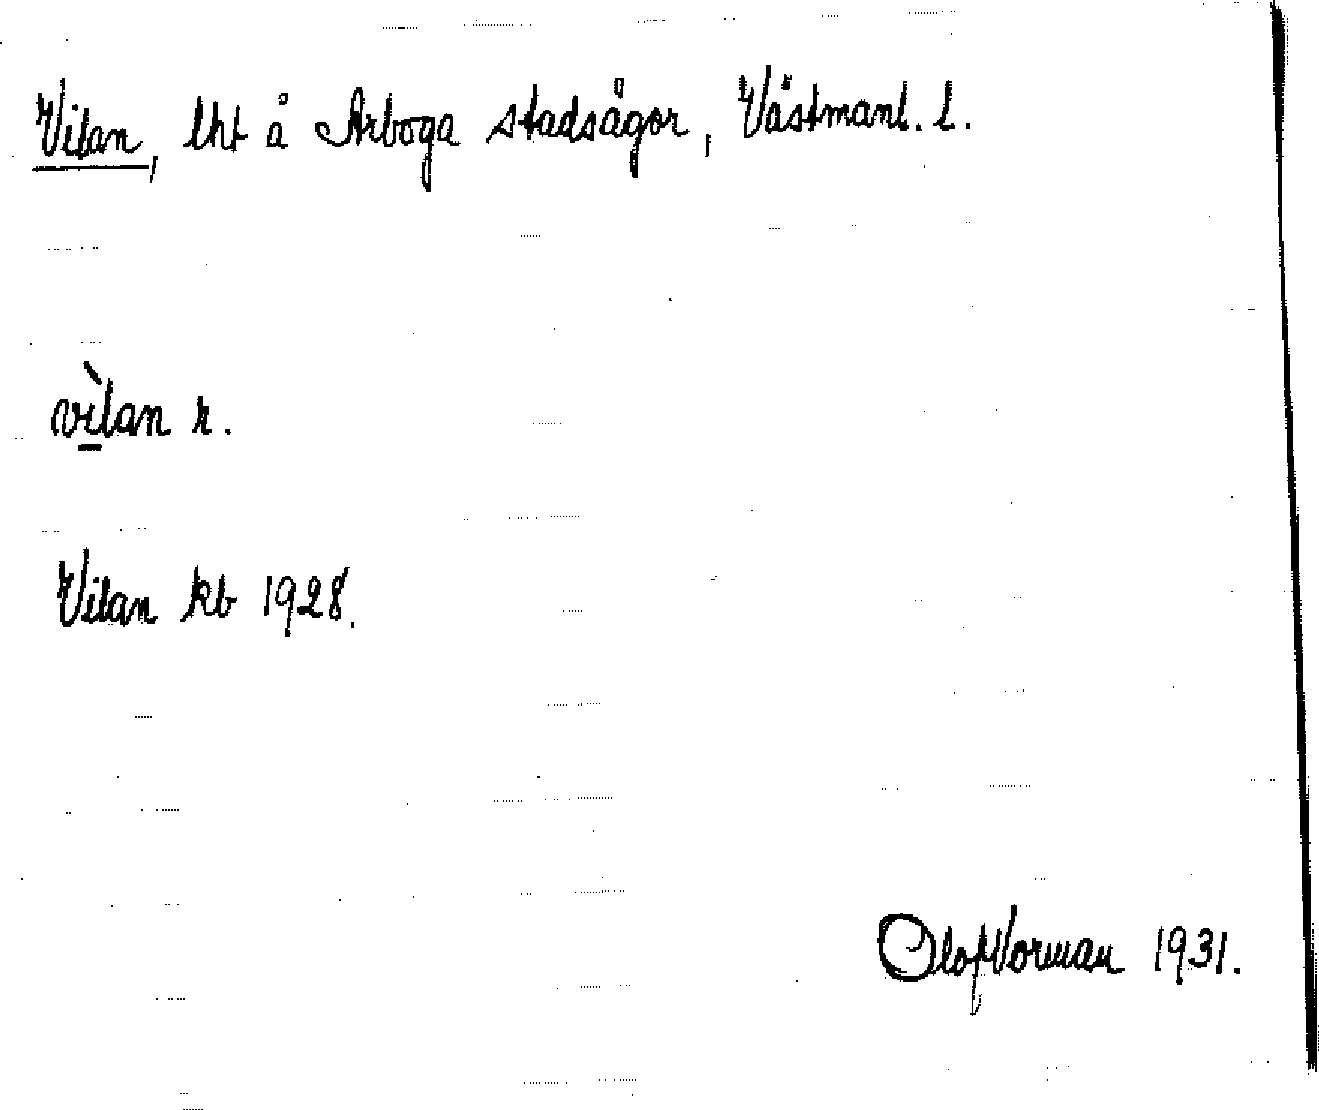 Vilan, lht å Arboga stadsägor, Västmanl. l.
vìlan r.
Vilan kb 1928.
Olof Norman 1931.